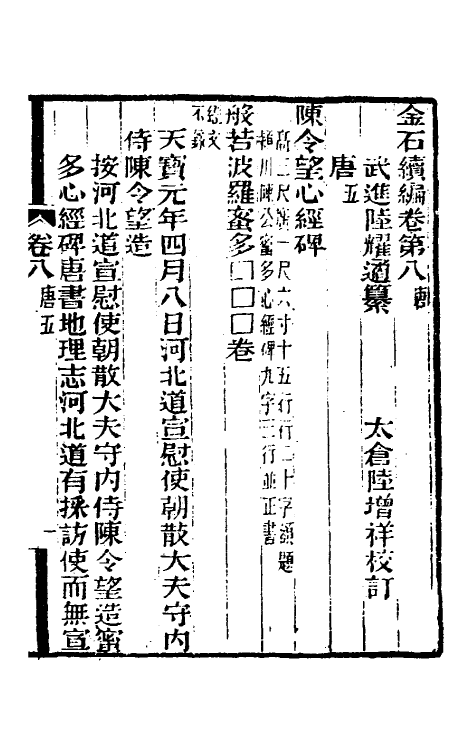 金石續編卷第八
武進陸耀遹纂　太倉陸增祥校訂
唐五
陳令望心經碑
高二尺廣一尺六寸十五行行二十字額題
潁川陳公蜜多心經碑九字三行並正書
般若波羅蜜多囗囗囗卷
經文
不錄
天寶元年四月八日河北道宣慰使朝散大夫守內
侍陳令望造
按河北道宣慰使朝散大夫守內侍陳令望造蜜
多心經碑唐書地理志河北道有採訪使而無宣
卷八　唐五　一